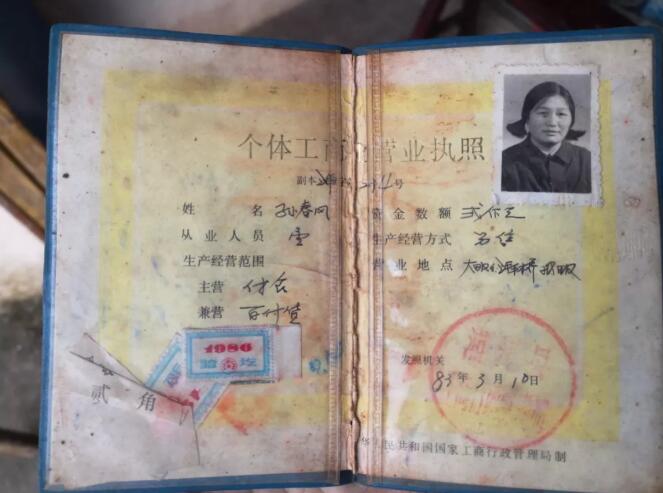 个体工商 营业执照
副本 号
姓 名 孙春风
从业人员 壹
生产经营范围
主营 付食
兼营 百什货
1986
验 讫
贰角
资金数额
生产经营方式 另售
营业地点
发照机关
83年3月10日
华人民共和国国家工商行政管理局制